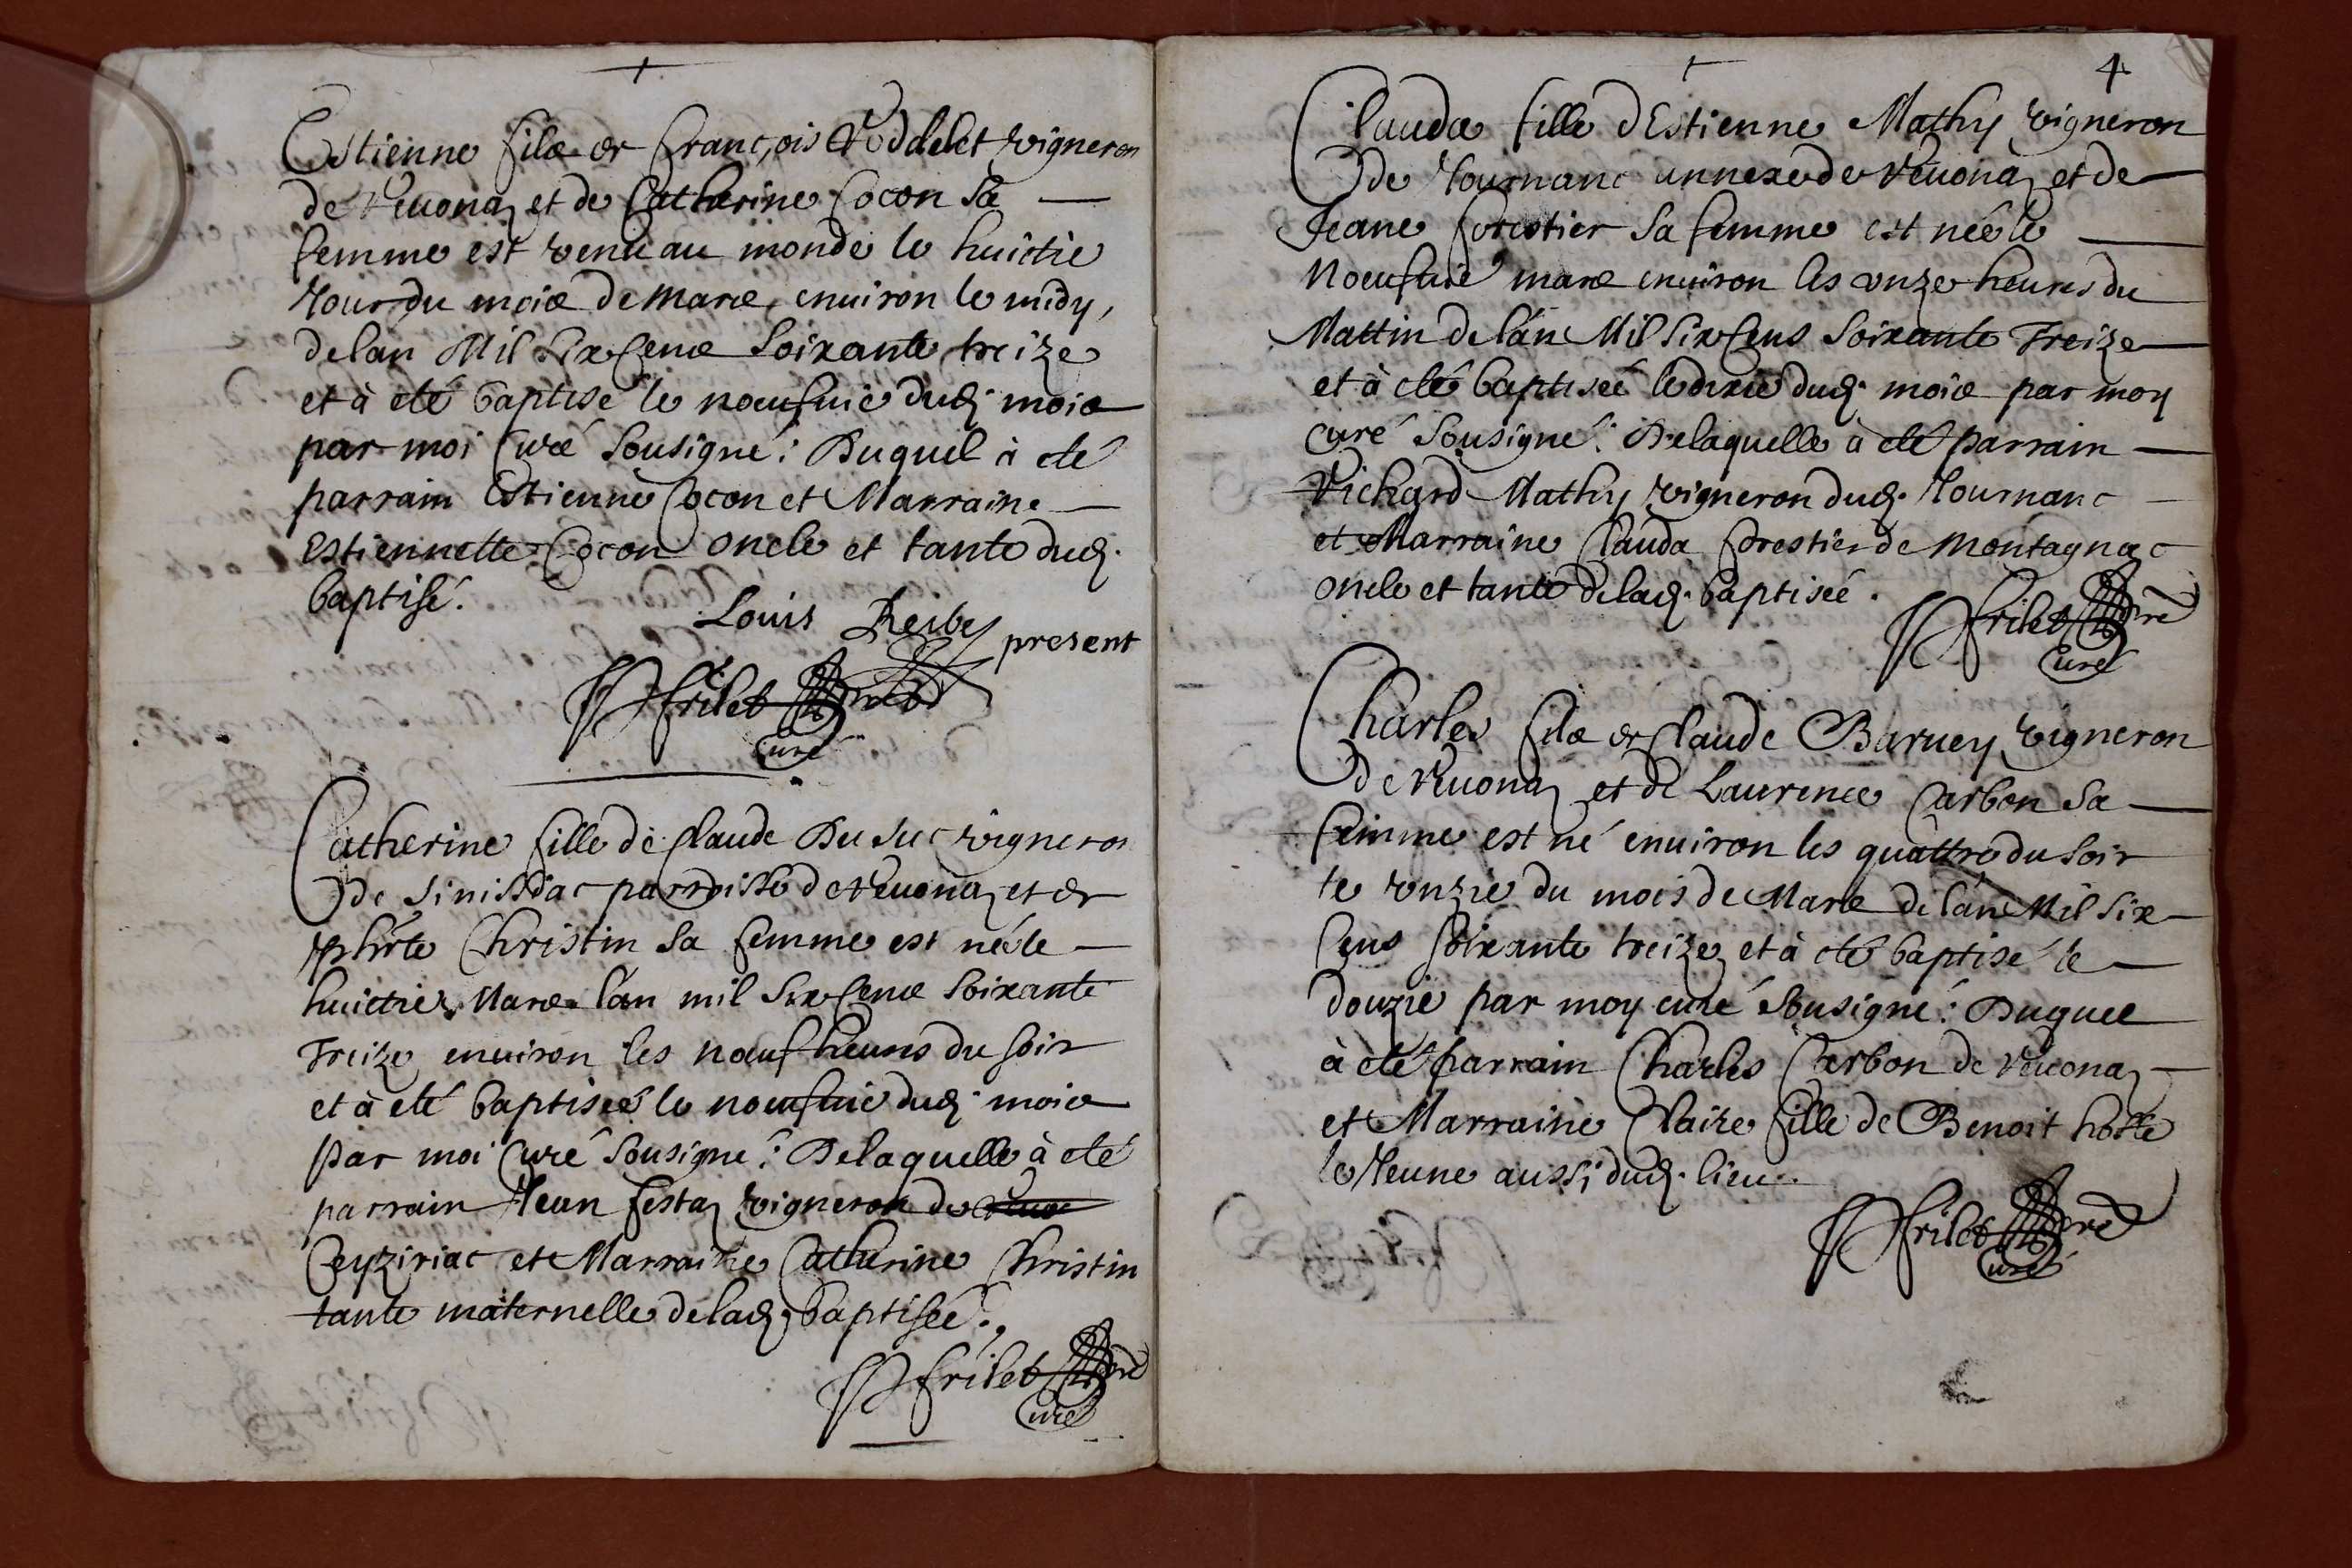 Estienne fils de François Roddelet vigneron
de Reuonaz et de Catherine Cocon sa
femme est venu au monde le huictie
Jour du mois de mars, enuiron le midy,
de lan Mil Six Cens Soixante treize
et à eté baptisé le noeufuie dud. mois
par moi Curé Sousigné: Duquel à eté
parrain Estienne Cocon et Marraine
Estiennette Cocon oncle et tante dud.
baptisé.
Louis Reibey
present
frilet pre
Curé
Catherine fille de Claude Du Suc vigneron
de Sinissiac parroisse de Reuonaz et de
Phirte Christin sa femme est née le
huictie Mars lan mil Six Cens Soixante
Treize enuiron les noeuf heures du soir
et à eté baptiseé le noeufuie dud. mois
par moi Curé Sousigné: De laquelle à eté
parrain Jean festaz vigneron de
Ceyziriac et Marraine Catherine Christin
tante maternelle de lad. baptiseé.
frilet pre
Curé
4
Clauda fille d'Estienne Mathy vigneron
de Journanc annexe de Reuonaz et de
Jeane forestier sa femme est née le
Noeufuie mars enuiron les onze heures du
Mattin de l'an Mil Six Cens Soixante Treize
et à eté baptiseé le dixie dud. mois par moy
curé Sousigné: De laquelle à eté parrain
Richard Mathy vigneron dud. Journanc
et Marraine Clauda forestier de Montagnac
oncle et tante de lad. baptiseé.
frilet pre
Curé
Charles fils de Claude Baruey vigneron
de Reuonaz et de Laurence Carbon sa
femme est né enuiron les quattre du soir
le vnzie du mois de Mars de l'an Mil Six
Cens soixante treize et à eté baptisé le
douzie par moy curé Sousigné: Duquel
à eté parrain Charles Carbon de Reuonaz
et Marraine Claire fille de Benoit hotte
le Jeune aussi dud. lieu.
frilet pre
Curé